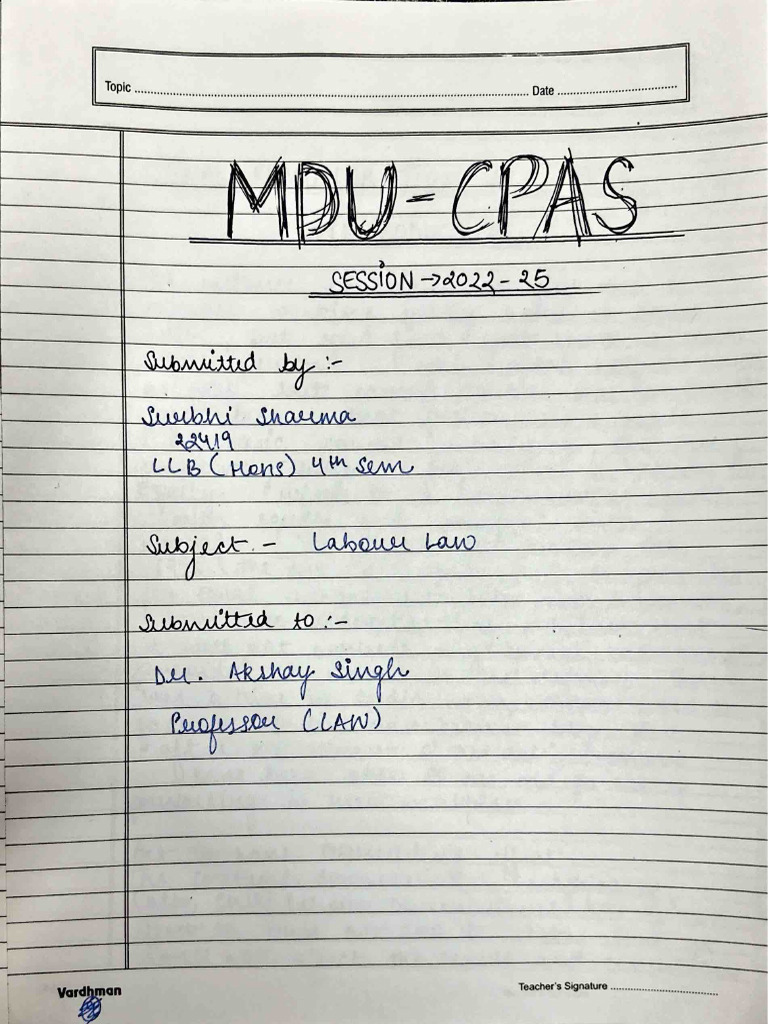 Topic ............ Date ............
MDU - CPAS
SESSION → 2022 - 25
Submitted by :-
Surbhi Sharma
22419
LLB (Hons) 4th sem
Subject - Labour Law
Submitted to :-
Dr. Akshay Singh
Professor (LAW)
Vardhman
Teacher's Signature ............